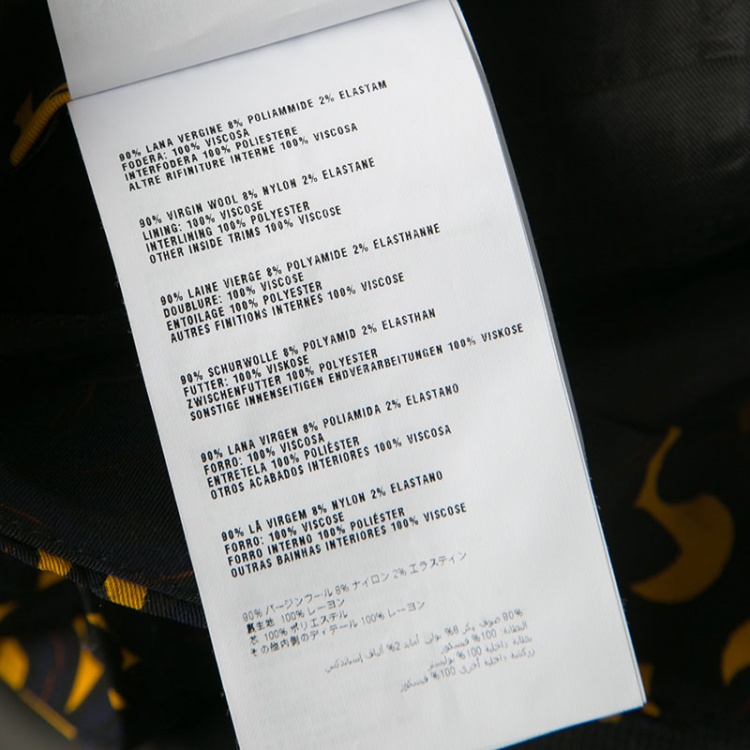 90% LANA VERGINE 8% POLIAMMIDE 2% ELASTAM
FODERA: 100% VISCOSA
INTERFODERA 100% POLIESTERE
ALTRE RIFINITURE INTERNE 100% VISCOSA
90% VIRGIN WOOL 8% NYLON 2% ELASTANE
LINING: 100% VISCOSE
INTERLINING 100% POLYESTER
OTHER INSIDE TRIMS 100% VISCOSE
90% LAINE VIERGE 8% POLYAMIDE 2% ELASTHANNE
DOUBLURE: 100% VISCOSE
ENTOILAGE 100% POLYESTER
AUTRES FINITIONS INTERNES 100% VISCOSE
90% SCHURWOLLE 8% POLYAMID 2% ELASTHAN
FUTTER: 100% VISKOSE
ZWISCHENFUTTER 100% POLYESTER
SONSTIGE INNENSEITIGEN ENDVERARBEITUNGEN 100% VISKOSE
90% LANA VIRGEN 8% POLIAMIDA 2% ELASTANO
FORRO: 100% VISCOSA
ENTRETELA 100% POLIÉSTER
OTROS ACABADOS INTERIORES 100% VISCOSA
90% LÃ VIRGEM 8% NYLON 2% ELASTANO
FORRO: 100% VISCOSE
FORRO INTERNO 100% POLIÉSTER
OUTRAS BAINHAS INTERIORES 100% VISCOSE
90% バージンウール 8% ナイロン 2% エラスティン
裏生地 100% レーヨン
芯 100% ポリエステル
その他内側のディテール 100% レーヨン
90% صوف بكر 8% نولون أمايد 2% ألياف
البطانة: 100% فيسكوز
بطانة داخلية 100% بوليستر
داخلية أخرى 100% فيسكوز